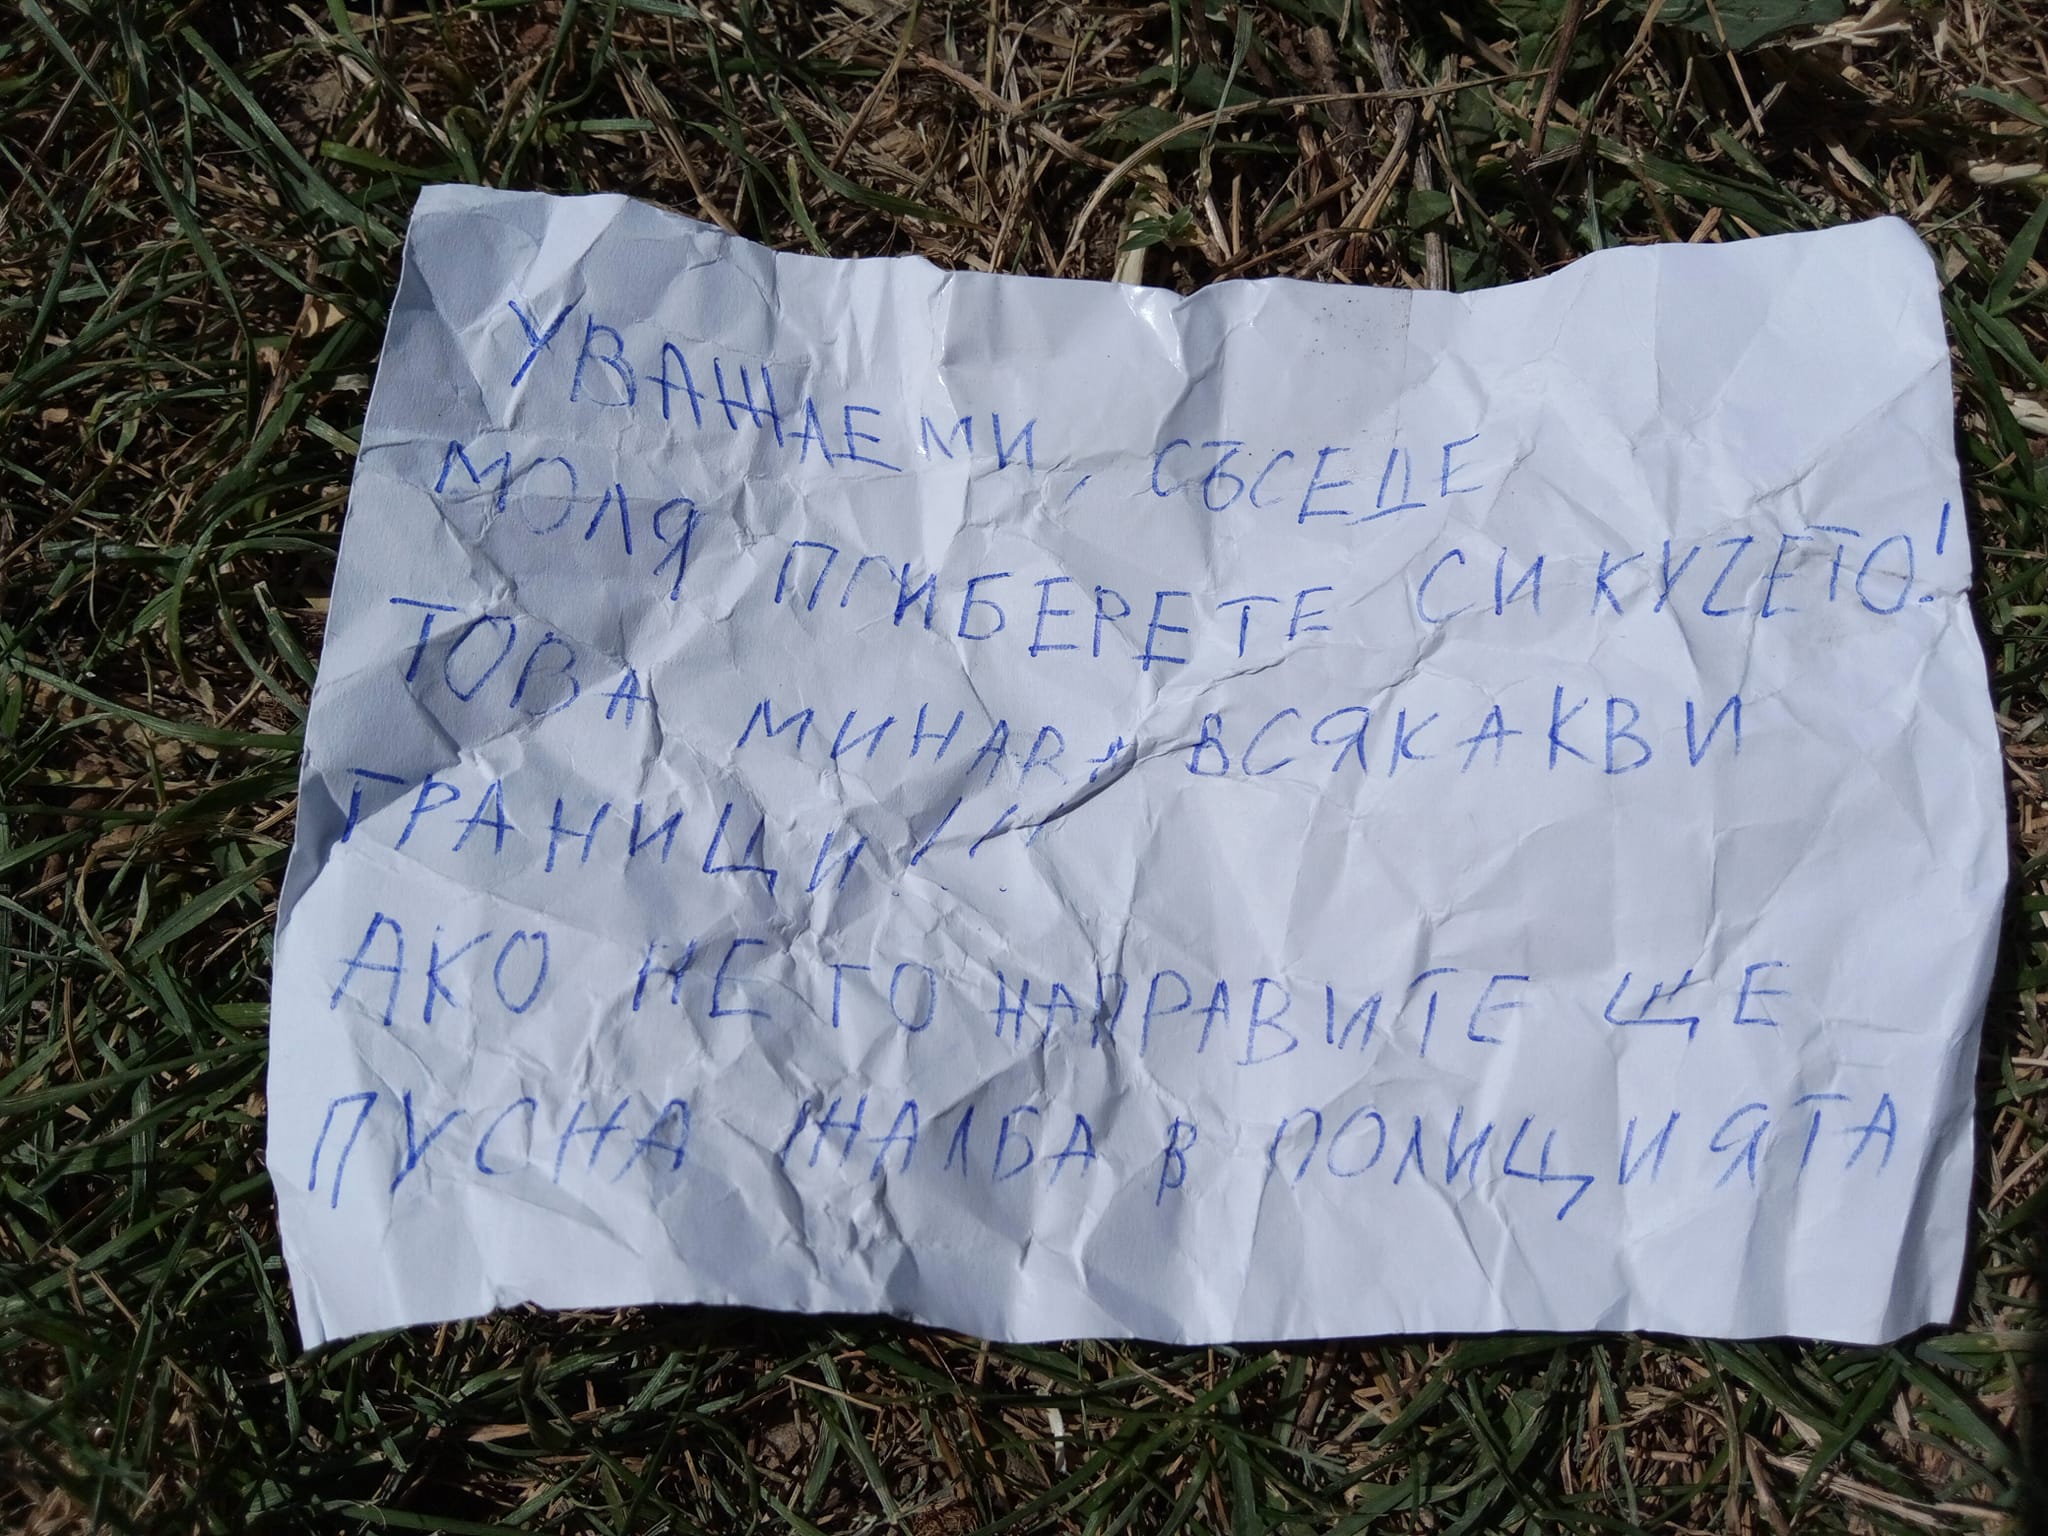 УВАЖАЕМИ, СЪСЕДЕ
МОЛЯ ПРИБЕРЕТЕ СИ КУЧЕТО!
ТОВА МИНАВА ВСЯКАКВИ
ГРАНИЦИ!!!
АКО НЕ ГО НАПРАВИТЕ ЩЕ
ПУСНА ЖАЛБА В ПОЛИЦИЯТА